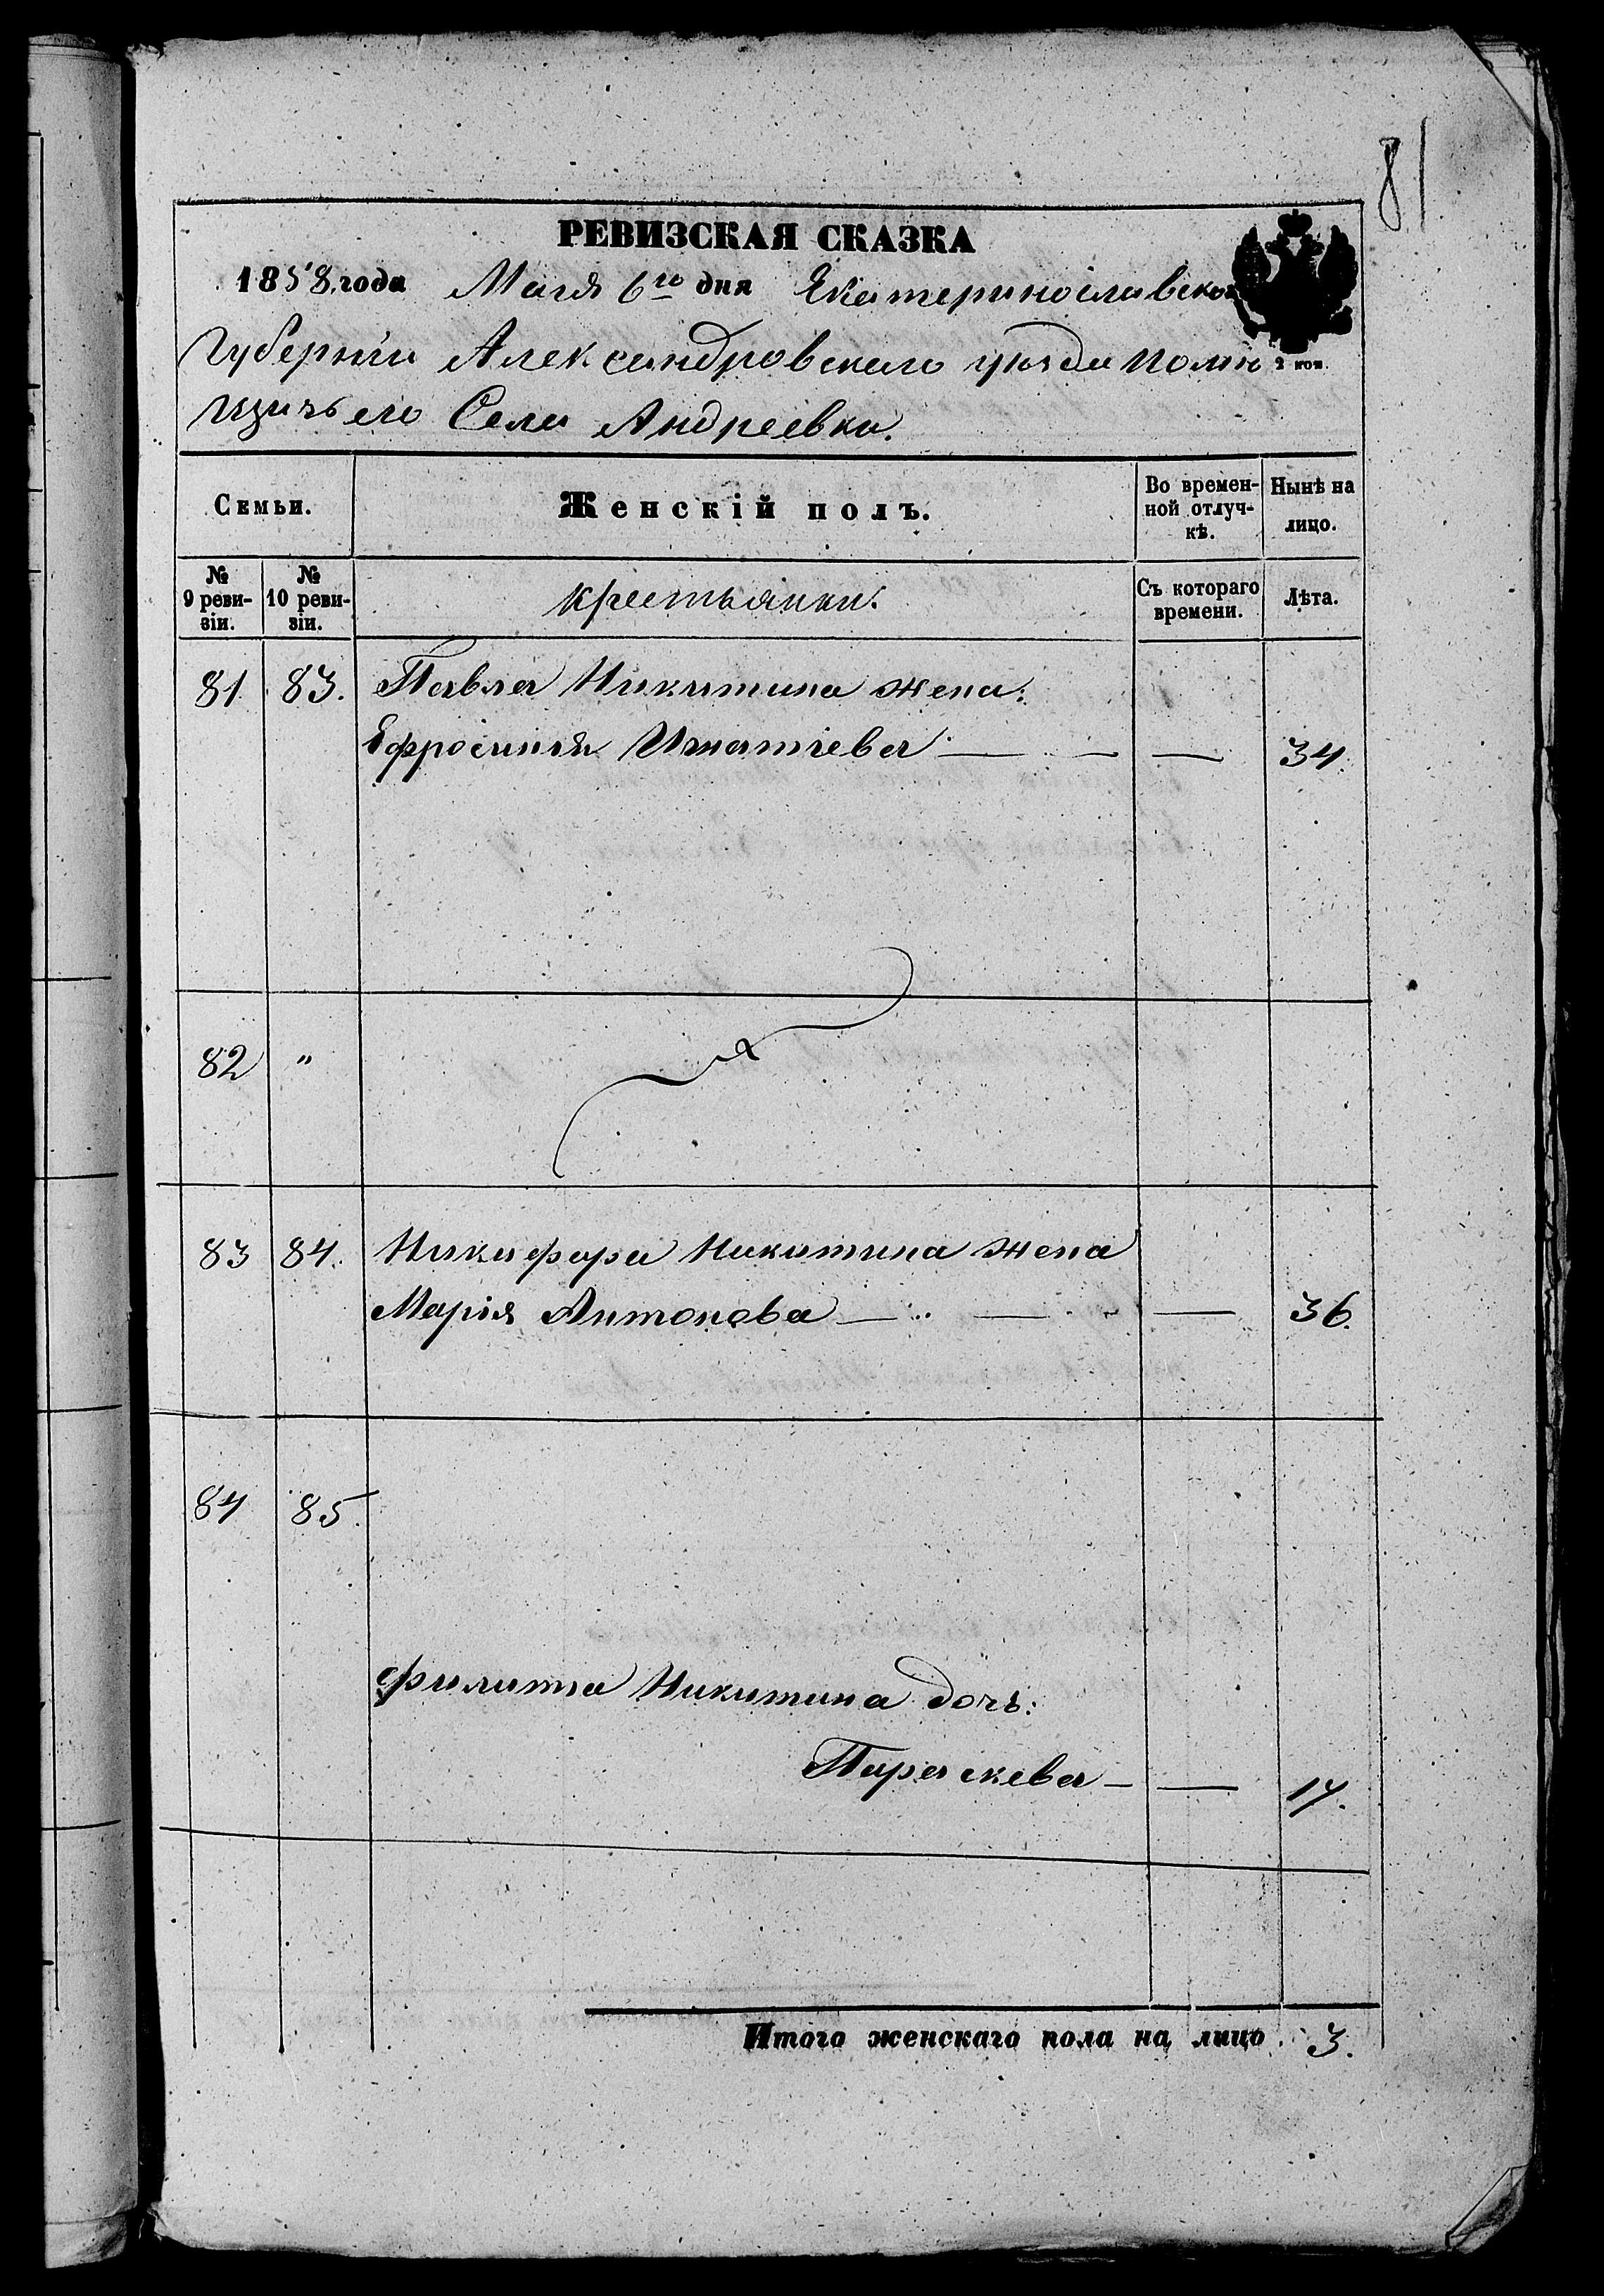 81
РЕВИЗСКАЯ СКАЗКА
1858 года Маія 6го дня Екатеринославской
Губерніи Александровскаго уѣзда помѣ
щичьего Села Андреевки.
2 коп.
Семьи.
Женскій полъ.
Во времен-
ной отлуч-
кѣ.
Нынѣ на
лицо.
№
9 реви-
зіи.
№
10 реви-
зіи.
крестьянки.
Съ котораго
времени.
Лѣта.
81. 83. Павла Никитина жена:
Ефросинія Игнатіева — — — 34.
82 "
83 84. Никифора Никитина жена
Марія Антонова — — — 36.
84 85.
Филипа Никитина дочь:
Параскева — — 17.
Итого женскаго пола на лицо 3.